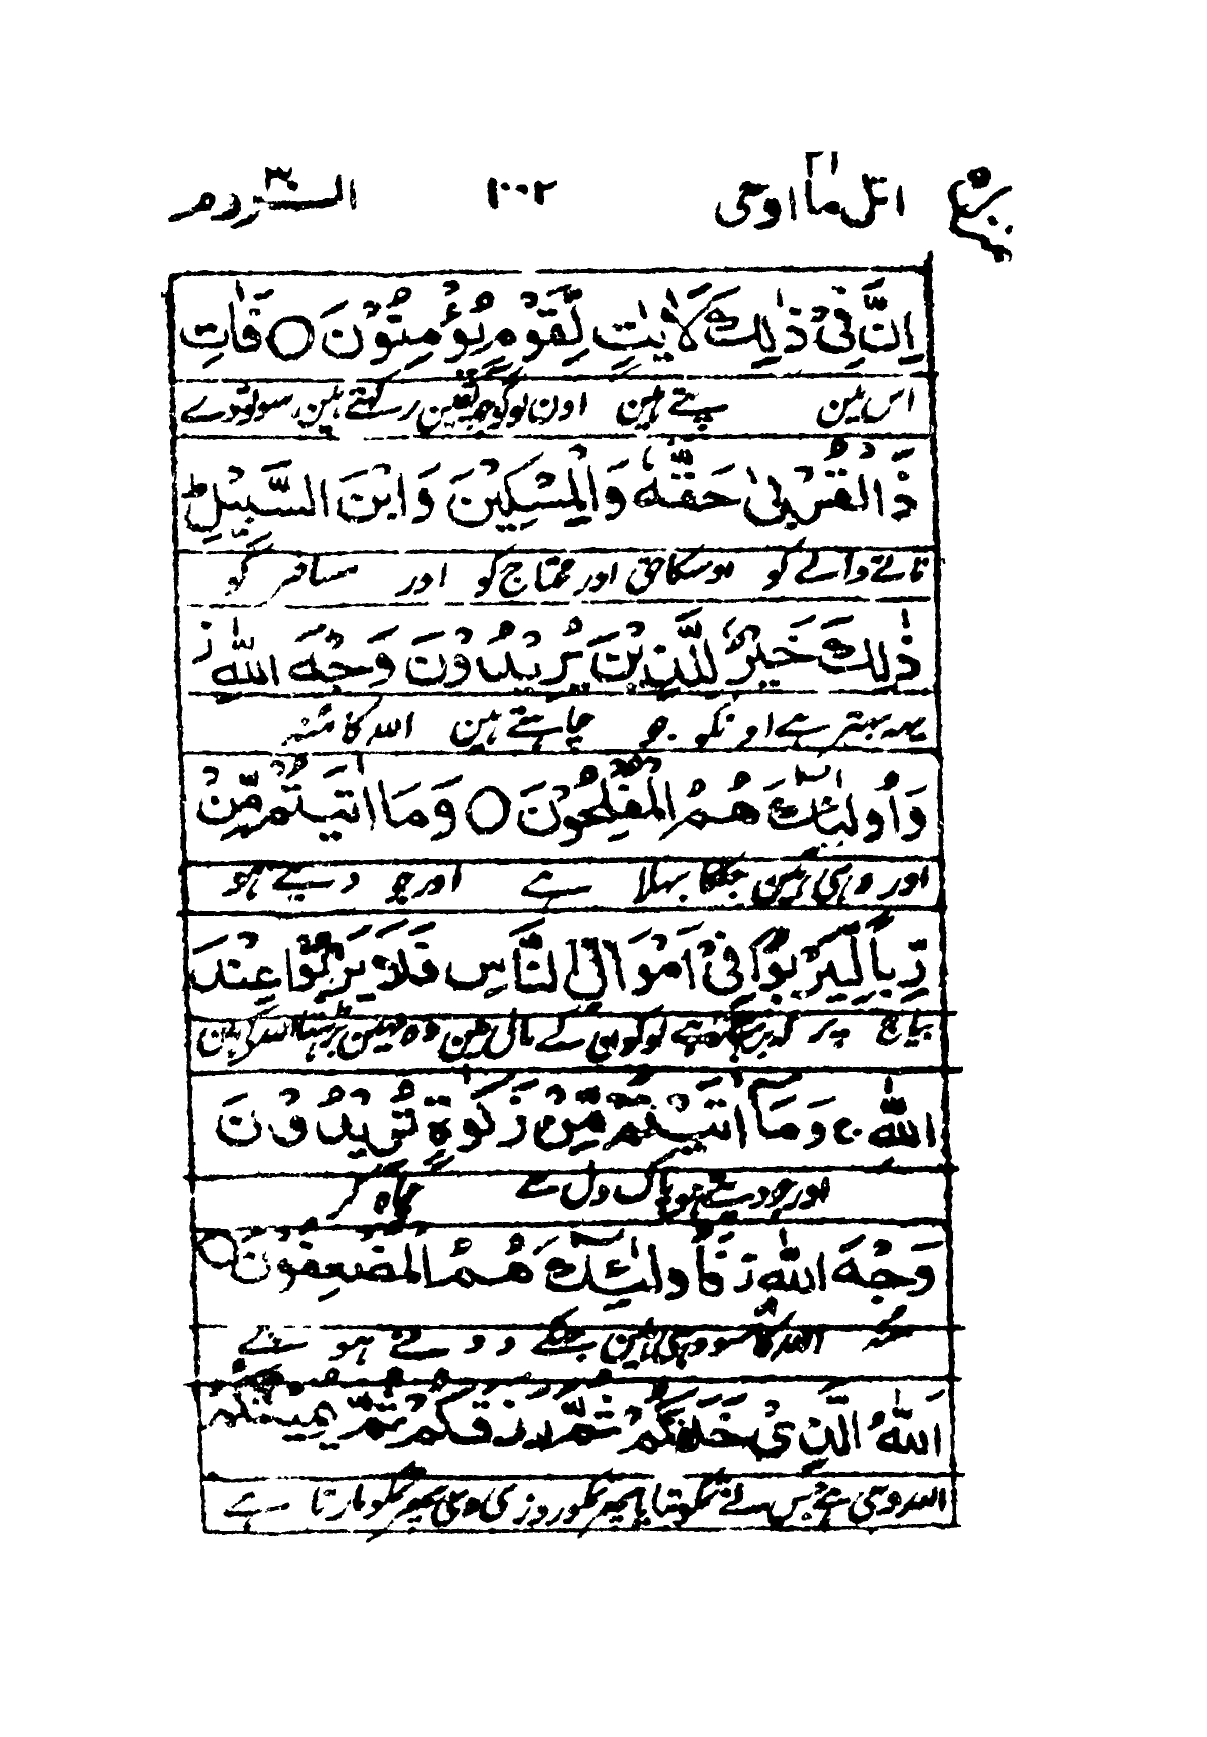 اتل ما اوحی ٢١ ١٠٠٢ الروم ٣٠
اِنَّ فِیْ ذٰلِکَ لَاٰیٰتٍ لِّقَوْمٍ یُّؤْمِنُوْنَ ○ فَاٰتِ
اس مین پتے ہین اون لوگو نکو جو یقین رکھتے ہین سو تو دے
ذَا الْقُرْبٰی حَقَّهٗ وَالْمِسْکِیْنَ وَابْنَ السَّبِیْلِ ؕ
ناتے والے کو اوسکا حق اور محتاج کو اور مسافر کو
ذٰلِکَ خَیْرٌ لِّلَّذِیْنَ یُرِیْدُوْنَ وَجْهَ اللّٰهِ ز
یہہ بہتر ہے اونکو جو چاہتے ہین اللہ کا منہہ
وَاُولٰٓئِکَ هُمُ الْمُفْلِحُوْنَ ○ وَمَا اٰتَیْتُمْ مِّنْ
اور وہی ہین جنکا بھلا ہے اور جو دیتے ہو
رِّبًا لِّیَرْبُوَا فِیْ اَمْوَالِ النَّاسِ فَلَا یَرْبُوْا عِنْدَ
بیاج پر کہ بڑہتا رہے لوگون کے مال مین وہ نہین بڑہتا اللہ کے یہان
اللّٰهِ ۚ وَمَآ اٰتَیْتُمْ مِّنْ زَکٰوةٍ تُرِیْدُوْنَ
اور جو دیتے ہو پاک دل سے چاہ کر
وَجْهَ اللّٰهِ فَاُولٰٓئِکَ هُمُ الْمُضْعِفُوْنَ ○
منہہ اللہ کا سو وہی ہین جنکے دونے ہوئے
اَللّٰهُ الَّذِیْ خَلَقَکُمْ ثُمَّ رَزَقَکُمْ ثُمَّ یُمِیْتُکُمْ
اللہ وہی ہے جس نے تمکو بنایا پھر تمکو روزی دی پھر تمکو مارتا ہے